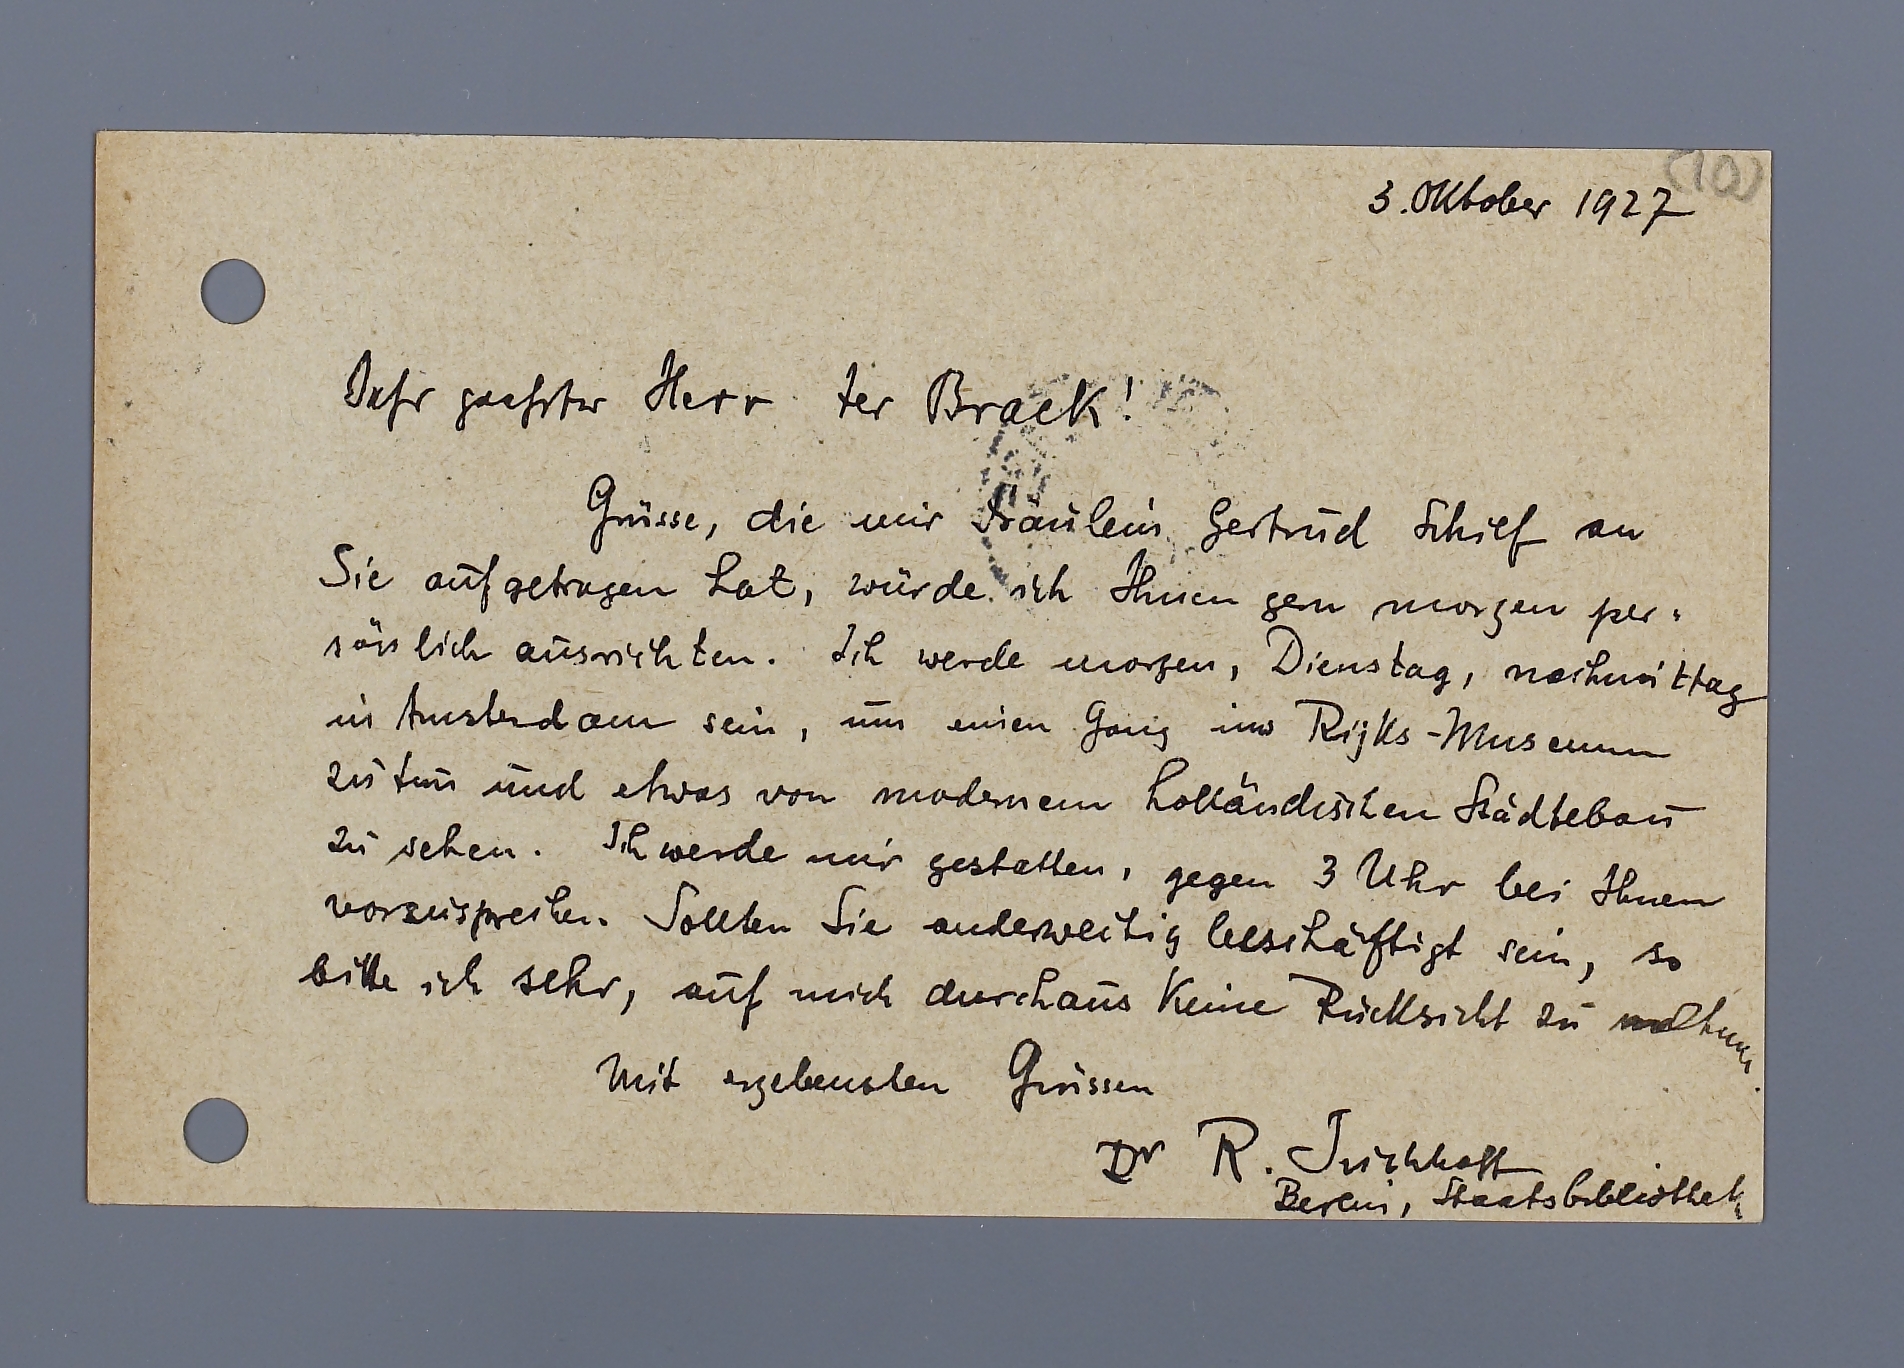 (10)
3. Oktober 1927
Sehr geehrter Herr ter Braek!
Grüsse, die mir Fräulein Gertrud Schief an
Sie aufgetragen hat, würde ich Ihnen gern morgen per-
sönlich ausrichten. Ich werde morgen, Dienstag, nachmittag
in Amsterdam sein, um einen Gang ins Rijks-Museum
zu tun und etwas von modernem holländischen Städtebau
zu sehen. Ich werde mir gestatten, gegen 3 Uhr bei Ihnen
vorzusprechen. Sollten Sie anderweitig beschäftigt sein, so
bitte ich sehr, auf mich durchaus keine Rücksicht zu nehmen.
Mit ergebensten Grüssen
Dr R.
Berlin, Staatsbibliothek